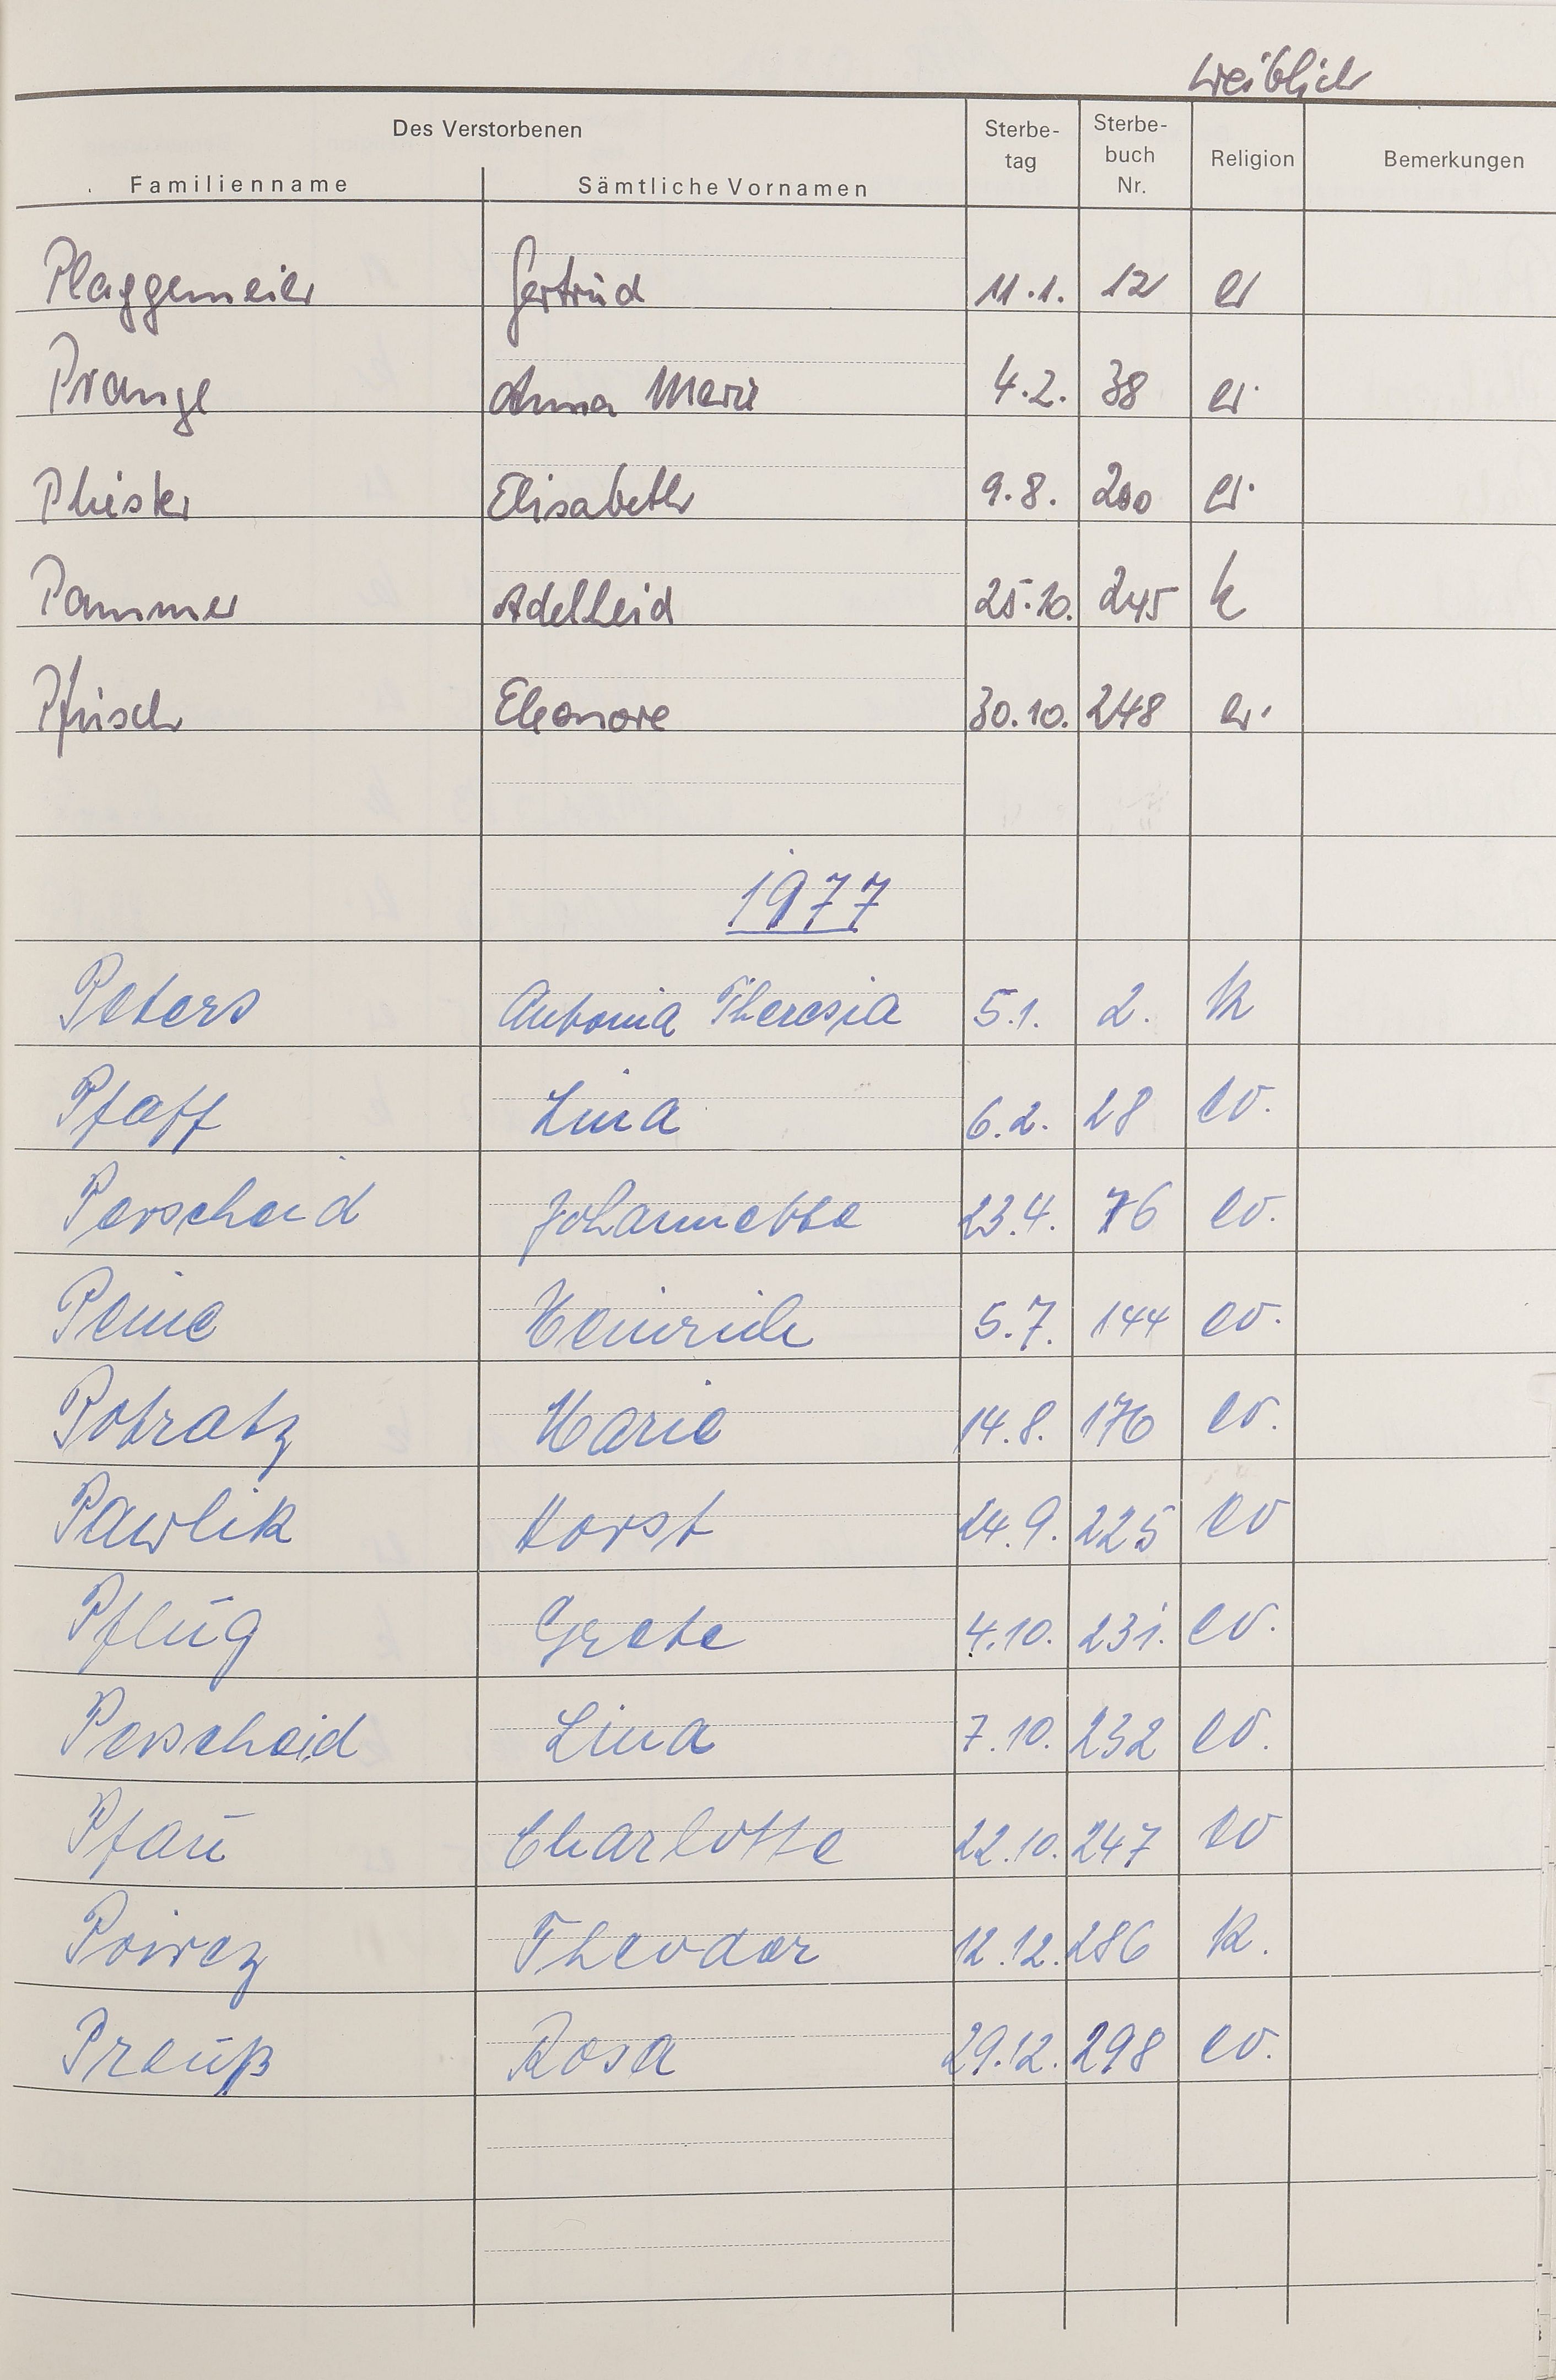 weiblich
Des Verstorbenen
Familienname Sämtliche Vornamen Sterbe-tag Sterbe-buch Nr. Religion Bemerkungen
Plaggemeier Gertrud 11.1. 12 ev
Prange Anna Marie 4.2. 38 ev.
Phister Elisabeth 9.8. 200 ev.
Pammer Adelheid 25.10. 245 k
Pfrisch Eleonore 30.10. 248 ev.
1977
Peters Antonia Theresia 5.1. 2. k
Pfaff Lina 6.2. 28 ev.
Perscheid Johannette 23.4. 76 ev.
Peine Heinrich 5.7. 144 ev.
Potratz Marie 14.8. 176 ev.
Pawlik Horst 24.9. 225 ev
Pflug Grete 4.10. 231. ev.
Perscheid Lina 7.10. 232 ev.
Pfau Charlotte 22.10. 247 ev
Poirez Theodor 12.12. 286 k.
Preuß Rosa 29.12. 298 ev.